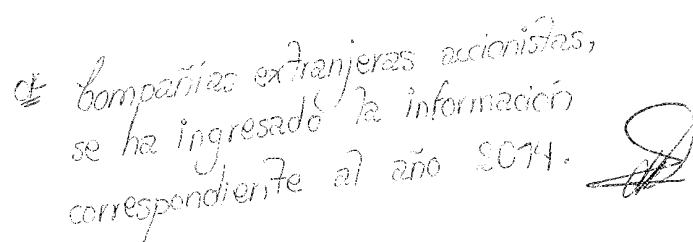 Compañías extranjeras accionistas,
se ha ingresadó la información
correspondiente al año 2014.